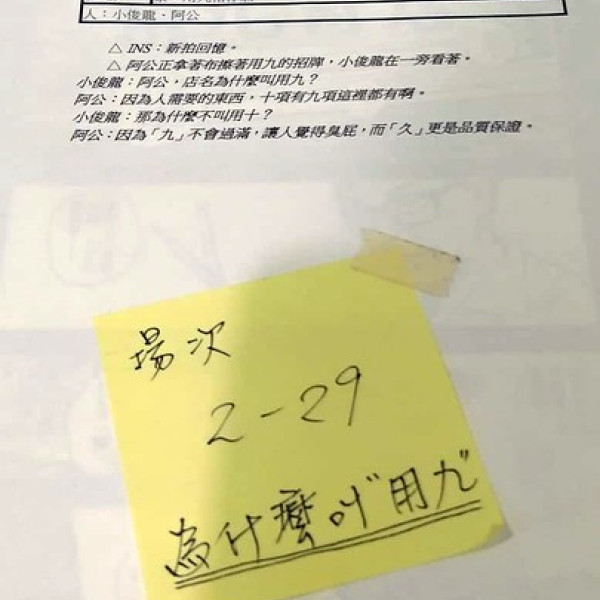 人：小俊龍、阿公
△ INS：新拍回憶。
△ 阿公正拿著布擦著用九的招牌，小俊龍在一旁看著。
小俊龍：阿公，店名為什麼叫用九？
阿公：因為人需要的東西，十項有九項這裡都有啊。
小俊龍：那為什麼不叫用十？
阿公：因為「九」不會過滿，讓人覺得臭屁，而「久」更是品質保證。
場次
2-29
為什麼叫"用九"